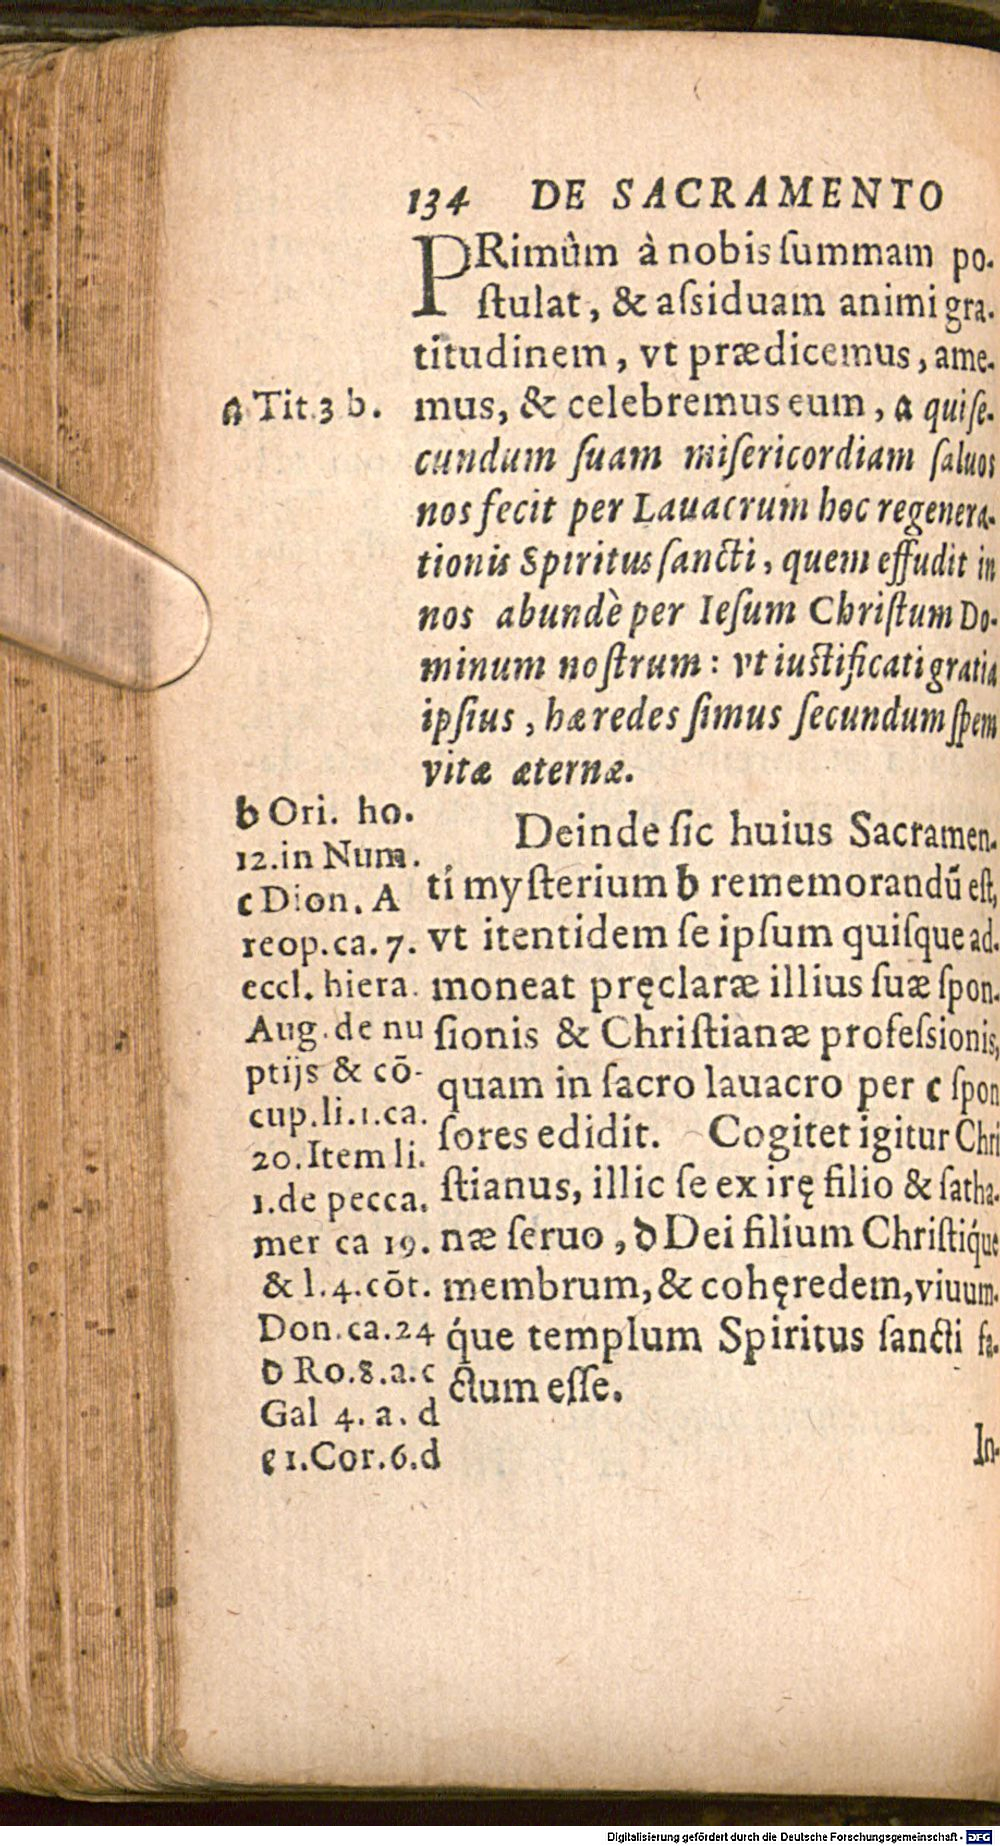 134 DE SACRAMENTO
PRimûm à nobis ſummam po-
ſtulat, & aſsiduam animi gra-
titudinem, vt prædicemus, ame-
mus, & celebremus eum, a qui ſe-
cundum ſuam miſericordiam ſaluos
nos fecit per Lauacrum hoc regenera-
tionis Spiritus ſancti, quem effudit in
nos abundè per Ieſum Chriſtum Do-
minum noſtrum: vt iuſtificati gratia
ipſius, hæredes ſimus ſecundum ſpem
vitæ æternæ.
Deinde ſic huius Sacramen-
ti myſterium b rememorandū eſt,
vt itentidem ſe ipſum quiſque ad-
moneat pręclaræ illius ſuæ ſpon-
ſionis & Chriſtianæ profeſsionis,
quam in ſacro lauacro per c ſpon
ſores edidit. Cogitet igitur Chri
ſtianus, illic ſe ex irę filio & ſatha-
næ ſeruo, d Dei filium Chriſtiq́ue
membrum, & cohęredem, viuum-
q́ue templum Spiritus ſancti fa-
ctum eſſe.
In-
a Tit.3 b.
b Ori. ho.
12.in Num.
c Dion. A
reop.ca.7.
eccl. hiera.
Aug. de nu
ptijs & cō-
cup.li.1.ca.
20.Item li.
1.de pecca.
mer ca 19.
& l.4.cōt.
Don.ca.24
d Ro.8.a.c
Gal 4. a. d
e 1.Cor.6.d
Digitalisierung gefördert durch die Deutsche Forschungsgemeinschaft - DFG